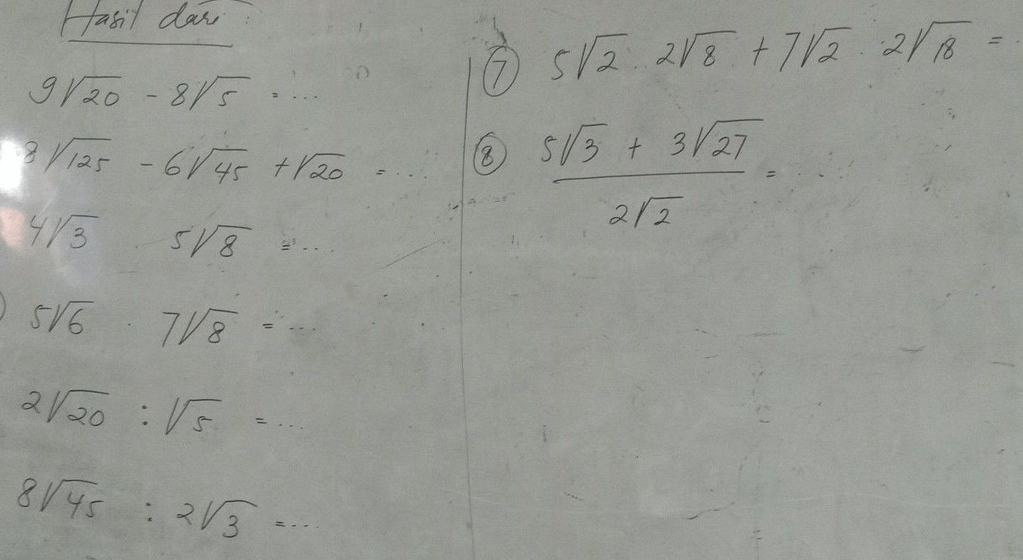 Hasil dari :
9√20 - 8√5 = ...
8√125 - 6√45 + √20 = ...
4√3 5√8 = ...
5√6 . 7√8 = ...
2√20 : √5 = ...
8√45 : 2√3 = ...
⑦ 5√2 . 2√8 + 7√2 . 2√18 =
⑧ 5√3 + 3√27
2√2 = ...